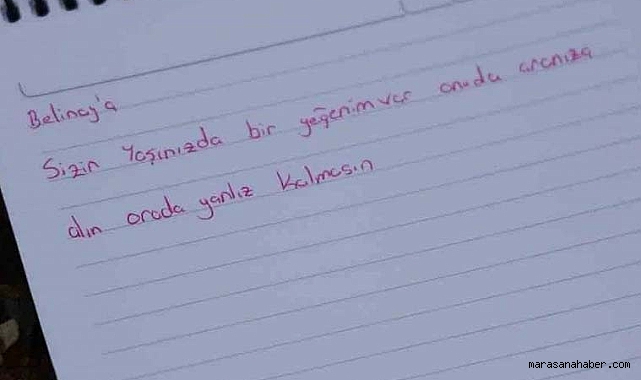 Belinay'a
Sizin Yaşınızda bir yeğenim var onuda aranıza
alın orada yanlız kalmasın
marasanahaber.com